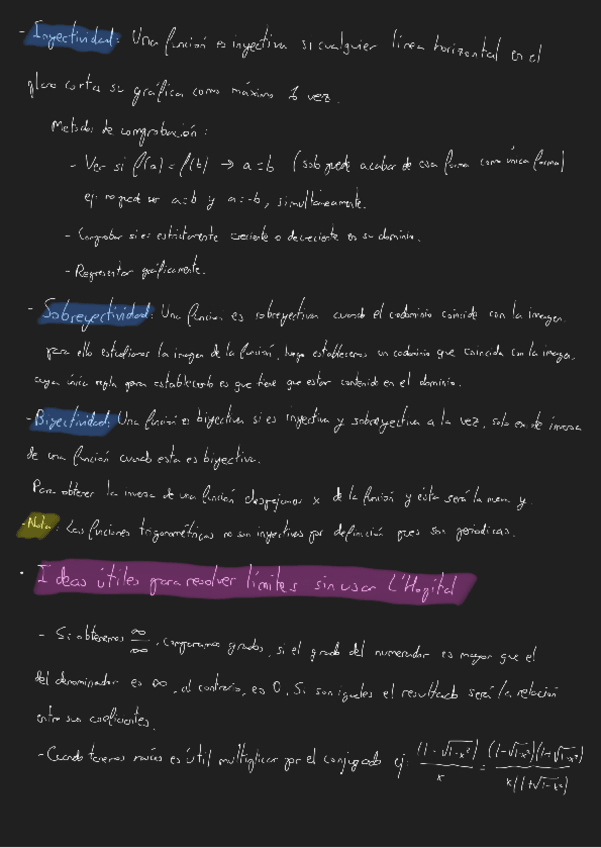 - Inyectividad: Una función es inyectiva si cualquier línea horizontal en el
plano corta su gráfica como máximo 1 vez.
Metodos de comprobación:
- Ver si f(a) = f(b) → a=b (solo puede acabar de esa forma como única forma)
ej: no puede ser a=b y a=-b, simultáneamente.
- Comprobar si es estrictamente creciente o decreciente en su dominio.
- Representar gráficamente.
- Sobreyectividad: Una función es sobreyectiva cuando el codominio coincide con la imagen,
para ello estudiamos la imagen de la función, luego establecemos un codominio que coincida con la imagen,
cuya única regla para establecerlo es que tiene que estar contenido en el dominio.
- Biyectividad: Una función es biyectiva si es inyectiva y sobreyectiva a la vez, solo existe inversa
de una función cuando esta es biyectiva.
Para obtener la inversa de una función despejamos x de la función y ésta será la nueva y.
- Nota: Las funciones trigonométricas no son inyectivas por definición pues son periodicas.
• Ideas útiles para resolver límites sin usar L'Hopital
- Si obtenemos ∞/∞, comparamos grados, si el grado del numerador es mayor que el
del denominador es ∞, al contrario, es 0. Si son iguales el resultado será la relación
entre sus coeficientes.
- Cuando tenemos raíces es útil multiplicar por el conjugado ej: (1-√1-x²)/x = (1-√1-x²)(1+√1-x²)/x(1+√1-x²)